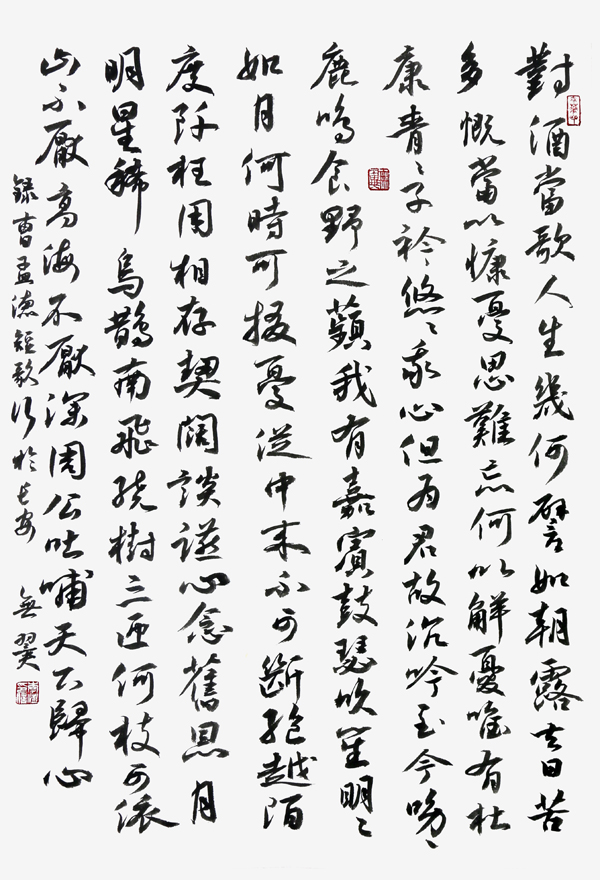 對酒當歌人生幾何譬如朝露去日苦
多慨當以慷憂思難忘何以解憂唯有杜
康青々子衿悠々我心但為君故沉吟至今呦々
鹿鳴食野之蘋我有嘉賓鼓瑟吹笙明々
如月何時可掇憂從中來不可斷絕越陌
度阡枉用相存契闊談讌心念舊恩月
明星稀烏鵲南飛繞樹三匝何枝可依
山不厭高海不厭深周公吐哺天下歸心
錄曹孟德短歌行於長安 無翼